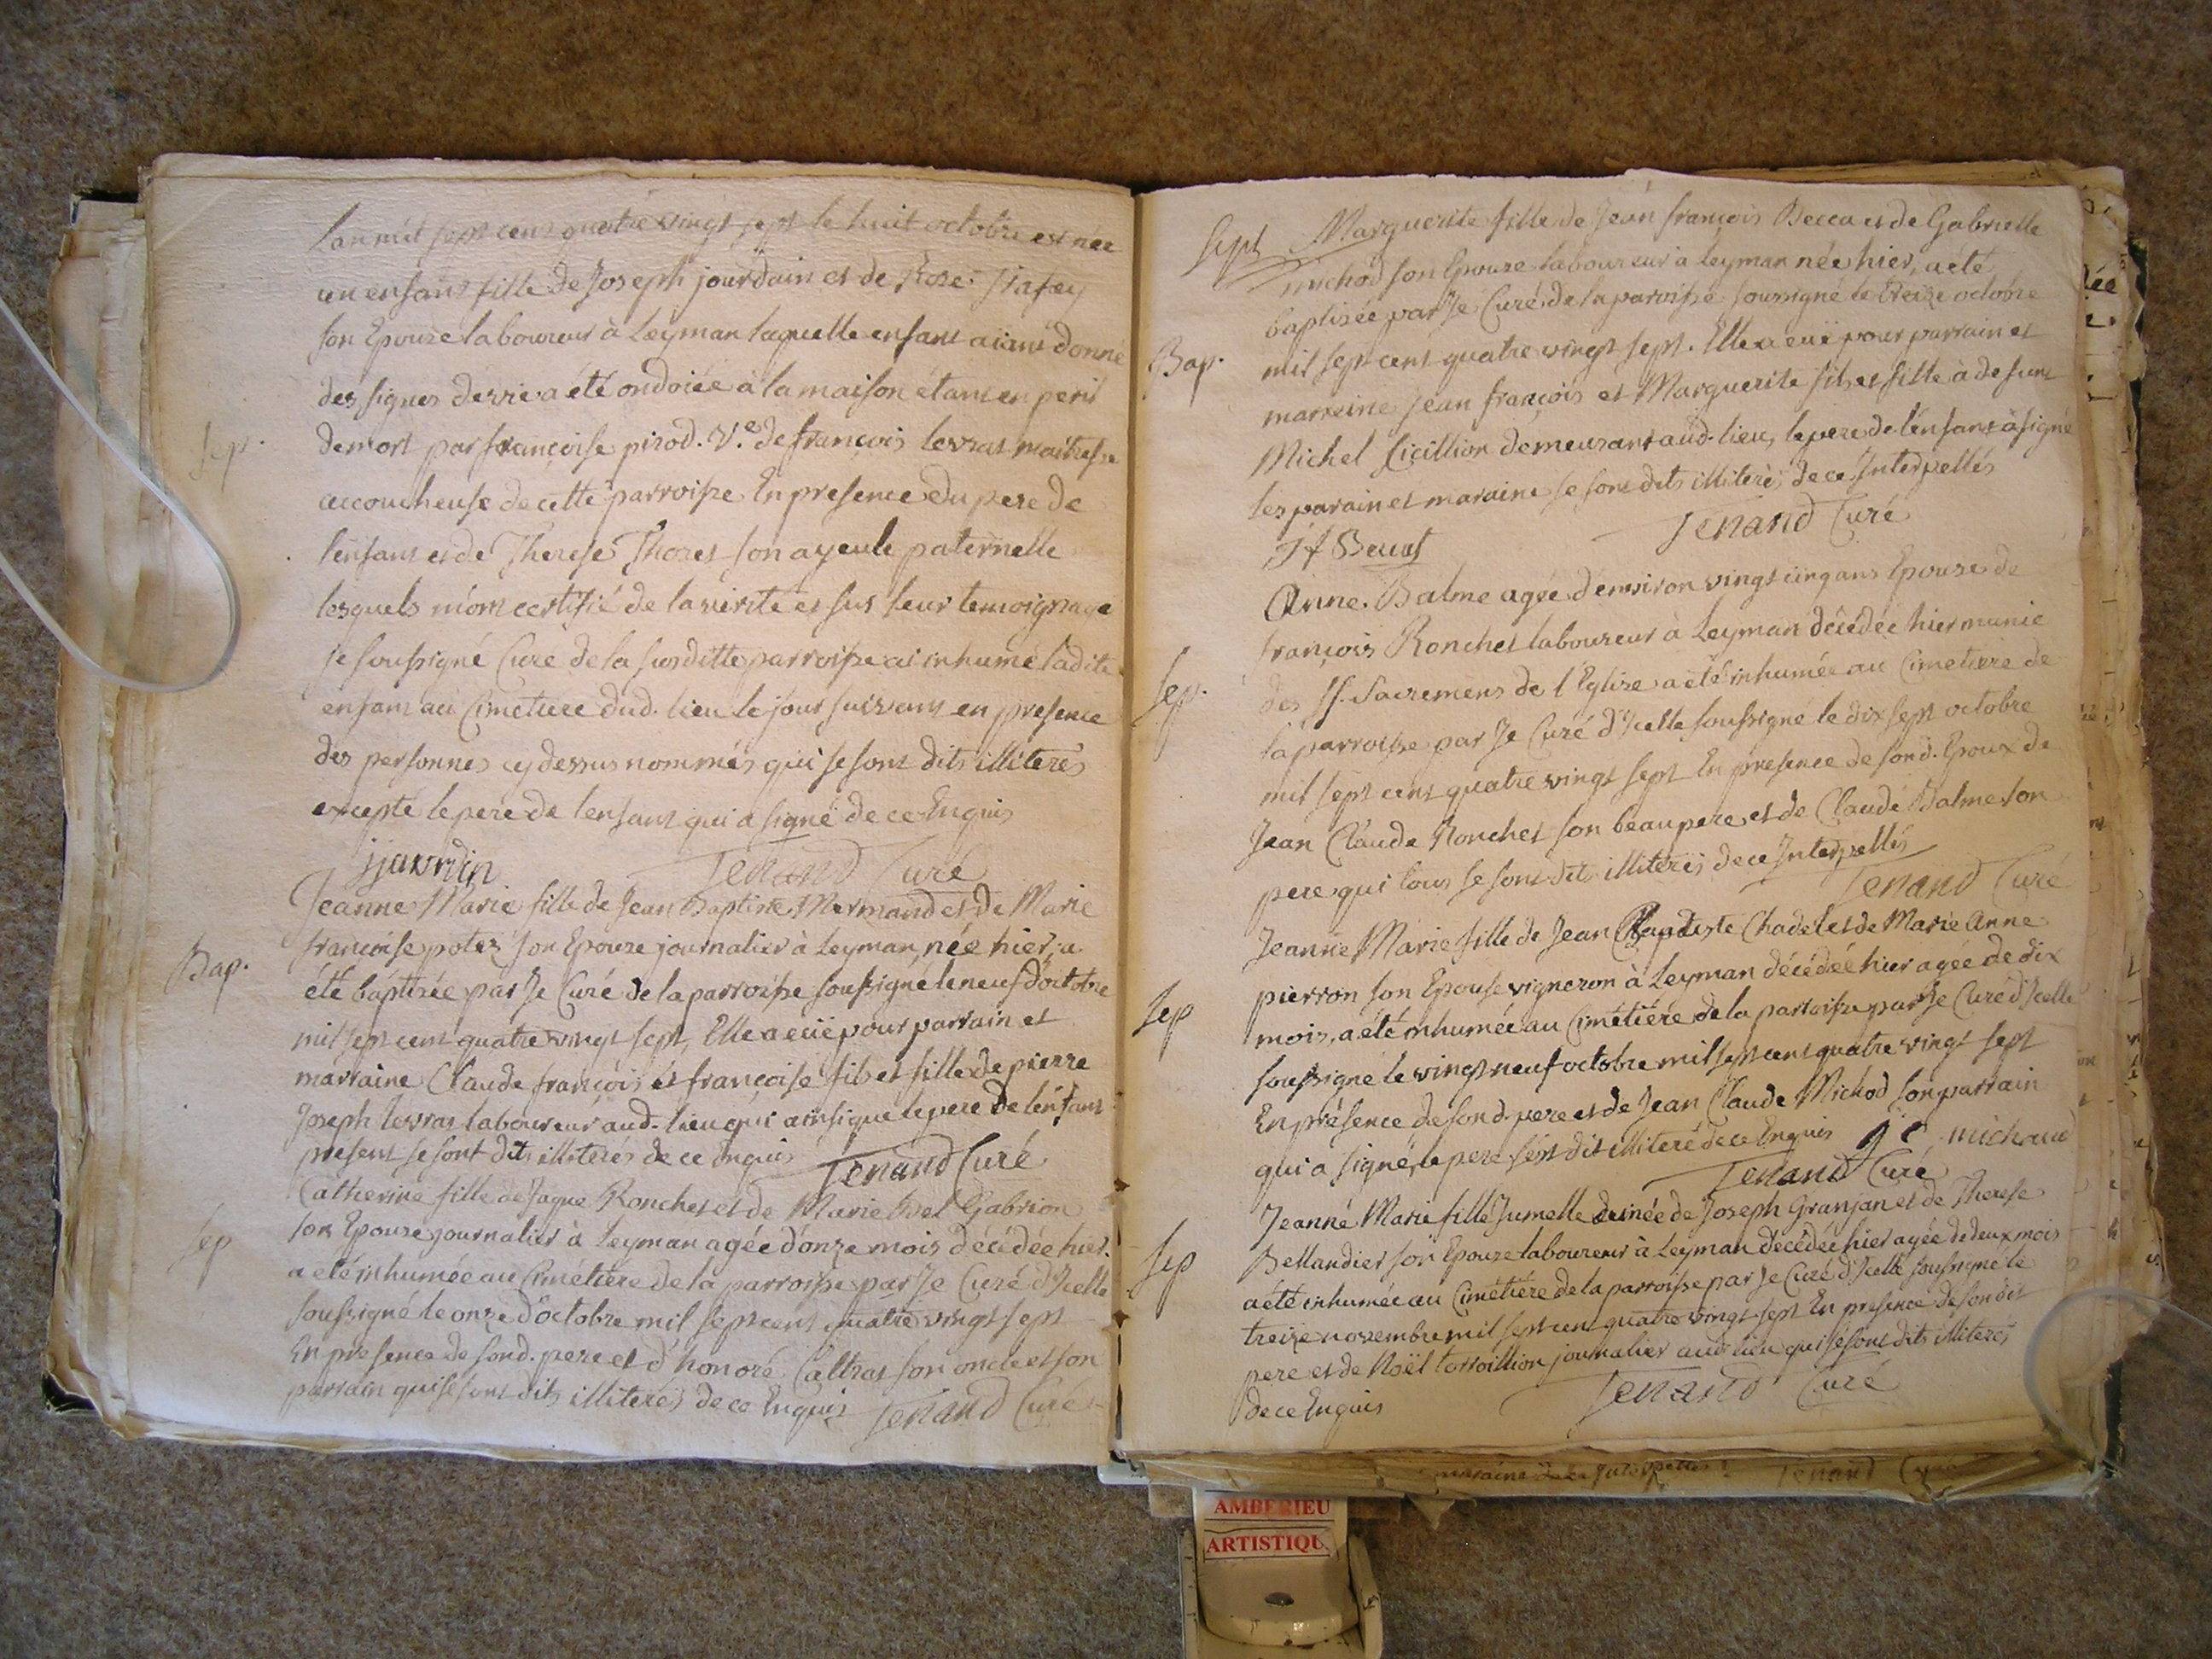 Lan mil sept cent quatre vingt sept le huit octobre est née
un enfant fille de Joseph jourdain et de Rose
son Epouse laboureur à Leyman laquelle enfant aiant donné
des signes de vie a été ondoiée à la maison étant en peril
Sep.
de mort par françoise pirod. V.e de françois levrat maitresse
accoucheuse de cette parroisse En presence du pere de
l'enfant et de Therese Thoret son ayeule paternelle
lesquels m'ont certifié de la verité et sur leur temoignage
je soussigné Curé de la susditte parroisse ai inhumé ladite
enfant au Cimetiere dud. lieu le jour suivant en presence
des personnes cy dessus nommés qui se sont dits illiteres
excepté le pere de l'enfant qui a signé de ce Enquis
jjourdin Tenand Curé
Jeanne Marie fille de Jean Baptiste Mermand et de Marie
Bap.
francoise potez son Epouse journalier à Leyman, née hier, a
été baptisée par Je Curé de la parroisse soussigné le neuf d'octobre
mil sept cent quatre vingt sept, Elle a euë pour parrain et
marraine Claude françois et françoise fils et fille de pierre
Joseph levrat laboureur aud. lieu qui ainsi que le pere de l'enfant
present se sont dits illiterés de ce Enquis Tenand Curé
Catherine fille de Jaque Ronchet et de Marie Gabrion
Sep
son Epouse journalier à Leyman agée d'onze mois décédée hier.
a été inhumée au Cimétiere de la parroisse par Je Curé d'Icelle
soussigné le onze d'octobre mil sept cent quatre vingt sept
En presence de sond. pere et d'honoré Caltrat son oncle et son
parrain qui se sont dits illiterés de ce Enquis Tenand Curé
Sept Marguerite fille de Jean françois Becca et de Gabrielle
michod son Epouse laboureur à Leyman née hier, a été
baptisée par Je Curé de la parroisse soussigné le treize octobre
Bap.
mil sept cent quatre vingt sept. Elle a euë pour parrain et
marreine Jean françois et Marguerite fils et fille à defunt
Michel Licillion demeurant aud. lieu, le pere de l'enfant a signé
les parain et maraine se sont dits illiterés de ce Interpellés
Jf Tenand Curé
Anne Balme agée d'environ vingt cinq ans Epouse de
françois Ronchet laboureur à Leyman décédée hier munie
Sep.
des SS. Sacremens de l'Eglise a été inhumée au Cimetiere de
la parroisse par Je Curé d'Icelle soussigné le dix sept octobre
mil sept cent quatre vingt sept En presence de sond. Epoux de
Jean Claude Ronchet son beau pere, et de Claude Balme son
pere qui tous se sont dits illiterés de ce Interpellés
Tenand Curé
Jeanne Marie fille de Jean Baptiste Chadel et de Marie Anne
pierron son Epouse vigneron à Leyman décédée hier agée de dix
Sep
mois, a été inhumée au Cimétiére de la parroisse par Je Curé d'Icelle
soussigné le vingt neuf octobre mil sept cent quatre vingt sept
En présence de sond. pere et de Jean Claude Michod son parrain
qui a signé, le pere s'est dit illiteré de ce Enquis jc michaud
Tenand Curé
Jeanne Marie fille Jumelle de Joseph Granjan et de Therese
Sep
Bellandier son Epouse laboureur à Leyman décédée hier agée de deux mois
a été inhumée au Cimétiére de la parroisse par Je Curé d'Icelle soussigné le
treize novembre mil sept cent quatre vingt sept En presence de son dit
pere et de Noël tarroillion journalier aud. lieu qui se sont dits illiterés
de ce Enquis Tenand Curé
Tenand
AMBERIEU
ARTISTIQU